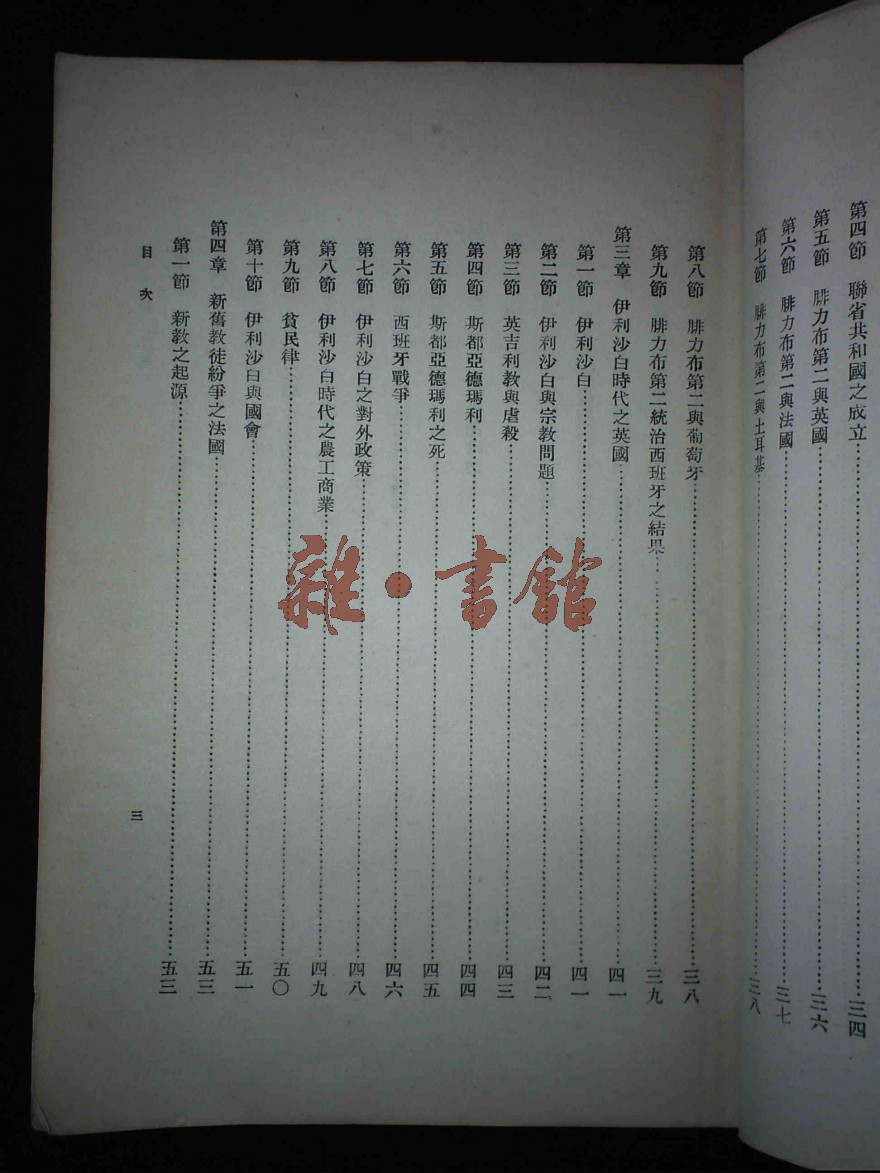 第四節　聯省共和國之成立……三四
第五節　腓力布第二與英國……三六
第六節　腓力布第二與法國……三七
第七節　腓力布第二與土耳基……三八
第八節　腓力布第二與葡萄牙……三八
第九節　腓力布第二統治西班牙之結果……三九
第三章　伊利沙白時代之英國……四一
第一節　伊利沙白……四一
第二節　伊利沙白與宗教問題……四二
第三節　英吉利教與虐殺……四三
第四節　斯都亞德瑪利……四四
第五節　斯都亞德瑪利之死……四五
第六節　西班牙戰爭……四六
第七節　伊利沙白之對外政策……四八
第八節　伊利沙白時代之農工商業……四九
第九節　貧民律……五〇
第十節　伊利沙白與國會……五一
第四章　新舊教徒紛爭之法國……五三
第一節　新教之起源……五三
目次
三
雜·書館